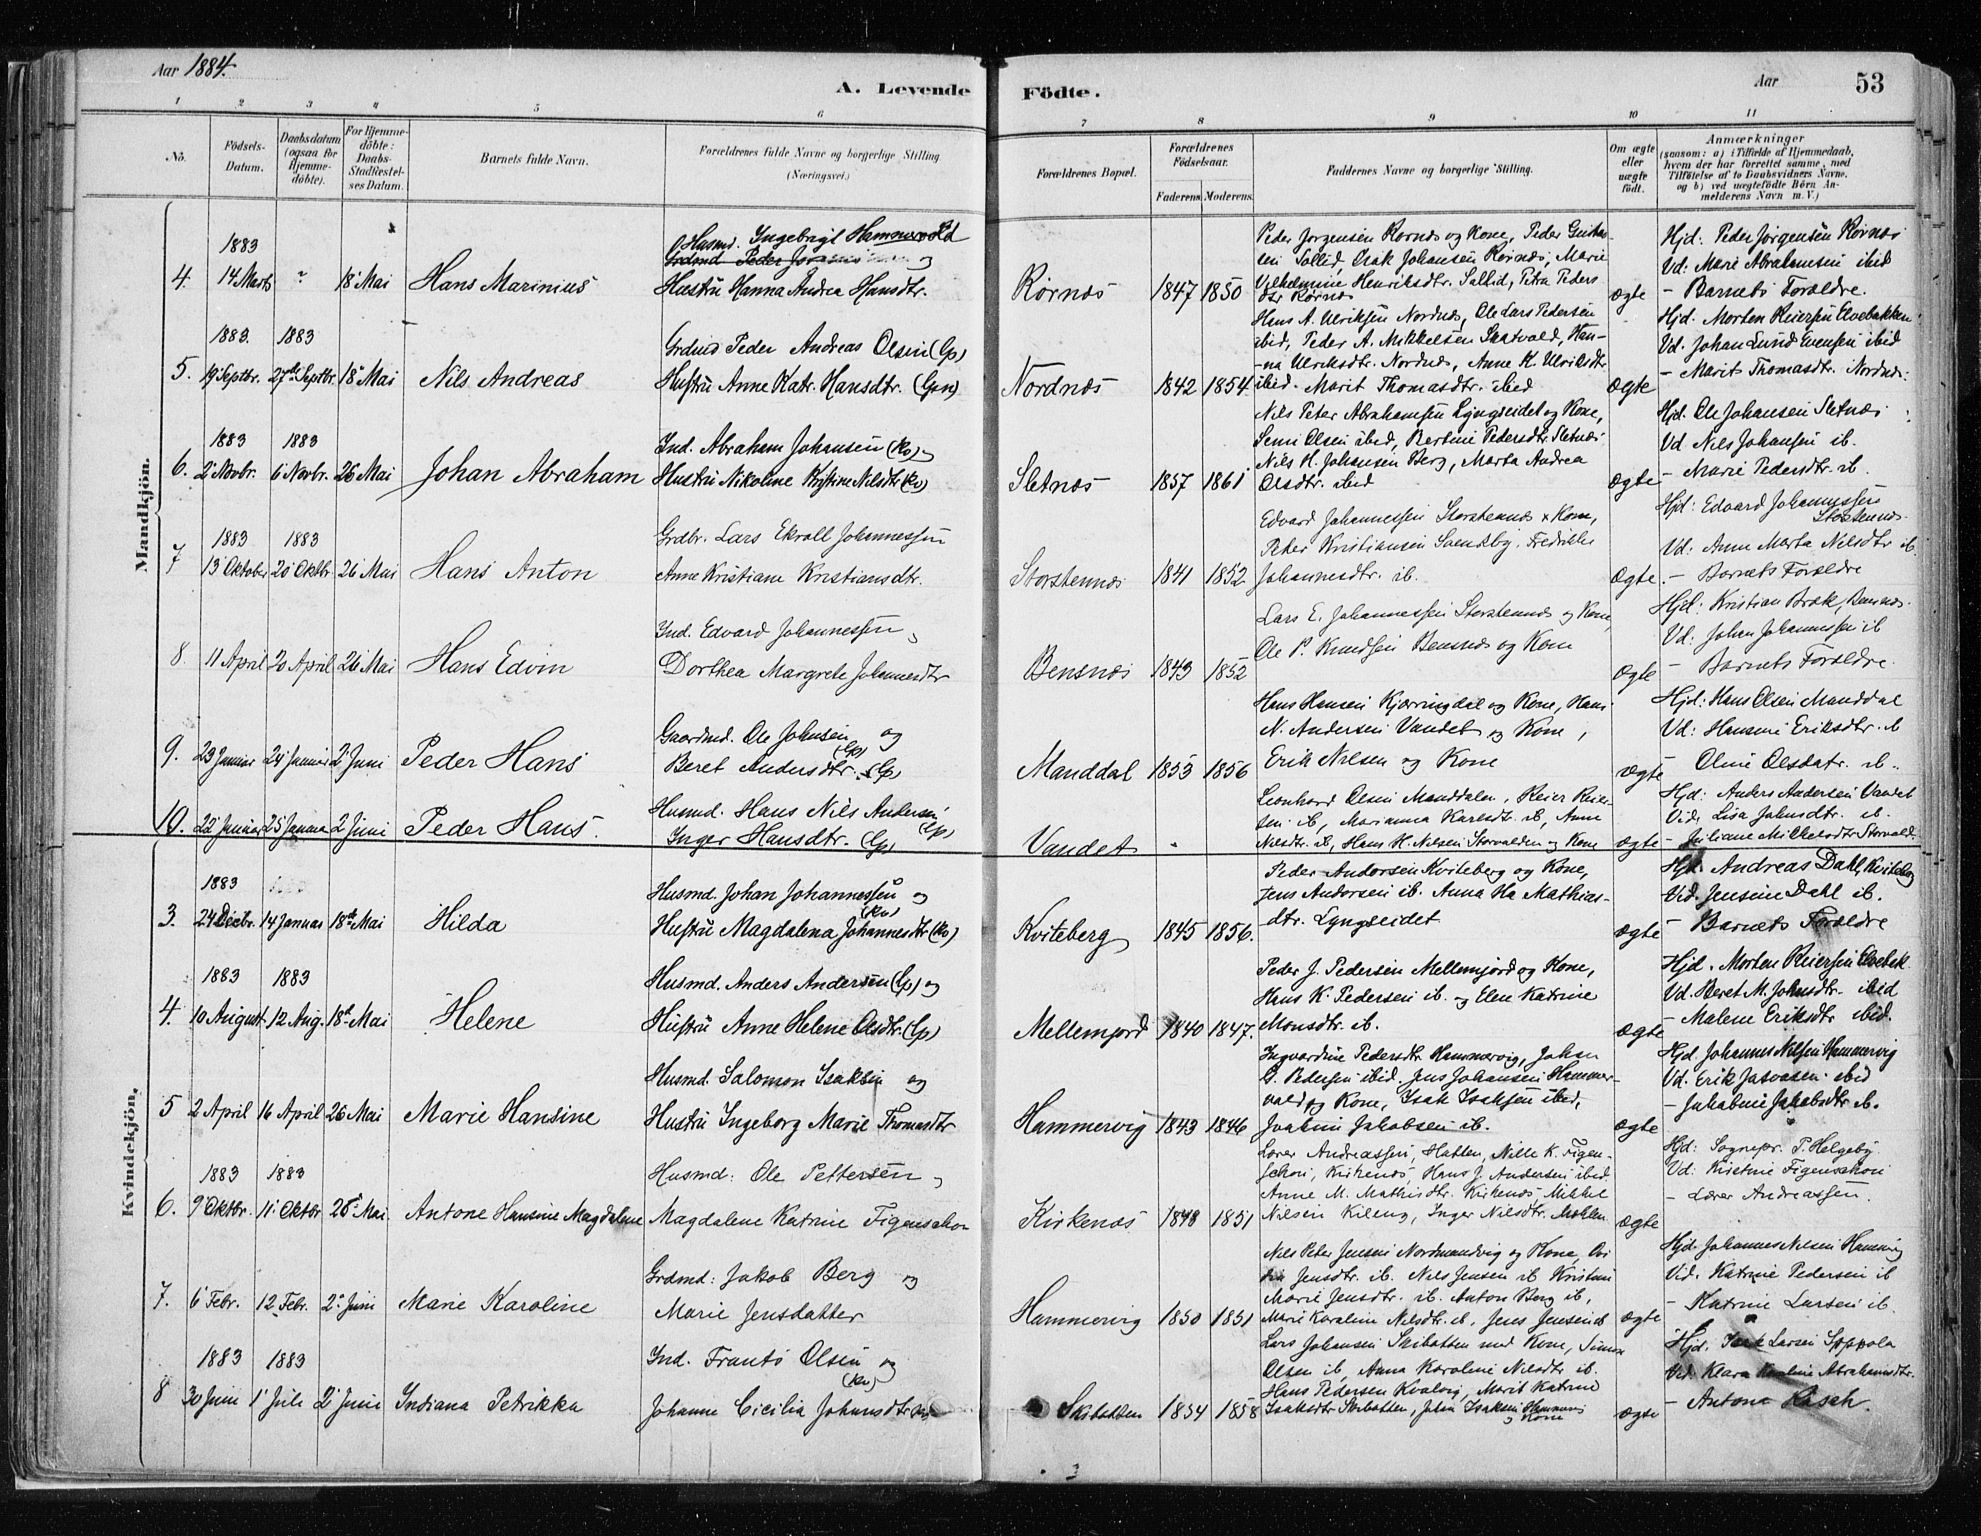 Aar 1884.
A. Levende
Födte.
Aar
53
1 2 3 4 5 6 7 8 9 10 11
No.
Födsels-
Datum.
Daabsdatum
(ogsaa for
Hjemme-
döbte).
For Hjemme-
döbte:
Daabs-
Stadfæstel-
ses Datum.
Barnets fulde Navn.
Forældrenes fulde Navne og borgerlige Stilling
(Næringsvei.)
Forældrenes Bopæl.
Forældrenes
Födselsaar.
Faderens. Moderens.
Faddernes Navne og borgerlige Stilling.
Om ægte
eller
uægte
födt.
Anmærkninger
(saasom: a) i Tilfælde af Hjemmedaab,
hvem der har forrettet samme, med
Tilföielse af to Daabsvidners Navne,
og b) ved uægtefödte Börn An-
melderens Navn m. V.)
Mandkjön.
1883
4. 14 Marts ? 18 Mai Hans Marinius
Husmd. Ingebrigt Hammervold
og
Hustru Hanna Andrea Hansdtr.
Rörnæs 1847 1850
Peder Jørgensen Rörnæs og Kone, Peder
Sollid, Isak Johansen Rörnæs, Marie
Vilhelmine Henriksdtr. Sollid, Petra Peders
dtr Rörnæs
ægte
Hjd: Peder Jørgensen Rörnæs
Vd: Marie Abrahamsen ibid
- Barnets Forældre.
1883 1883
5. 19 Septbr. 27de Septbr. 18 Mai Nils Andreas
Grdmd Peder Andreas Olsen (Lp)
Hustru Anne Katr. Hansdtr. (Lpn)
Nordnæs 1842 1854
Hans A. Ulriksen Nordnæs, Ole Lars Pedersen
ibid, Peder A. Mikkelsen Skatvold, Han-
na Ulriksdtr. Nordnæs, Anne K. Ulriksdtr
ibid. Marit Thomasdtr. ibid
ægte
Hjd. Morten Reiersen Elvebakken
Vd. Johan Lund Evensen ibid
- Marit Thomasdtr. Nordnæs.
1883 1883
6. 2 Novbr. 6 Novbr. 26 Mai Johan Abraham
Ind. Abraham Johansen (Kv)
Hustru Nikoline Kristine Nilsdtr (Kv)
Sletnæs 1857 1861
Nils Peter Abrahamsen Lyngseidet og Kone,
Olsen ibid, Bertine Pedersdtr. Sletnæs
Nils H. Johansen Berg, Marta Andrea
Olsdtr. ibid
ægte
Hjd. Ole Johansen Sletnæs
Vd Nils Johansen ib.
- Marie Pedersdtr. ib.
1883 1883
7 13 Oktober 20 Oktbr 26 Mai Hans Anton
Grdbr. Lars Ekroll Johannessen
Anne Kristiane Kristiansdtr.
Storstennæs 1841 1852
Edvard Johannessen Storstennæs & Kone,
Peter Kristiansen Svendsby, Fredrikke
Johannesdtr. ib.
ægte
Hjd: Edvard Johannessen
Storstennæs.
Vd: Anne Marta Nilsdtr ib.
- Barnets Forældre
8. 11 April 20 April 26 Mai Hans Edvin
Ind. Edvard Johannessen
Dorthea Margrete Johannesdtr
Bensnæs 1843 1852
Lars E. Johannessen Storstennæs og Kone,
Ole P. Knudsen Bensnæs og Kone
ægte
Hjd: Kristian Bræk, Bensnæs.
Vd: Johan Johannessen ib
- Barnets Forældre.
9. 23 Januar 24 Januar 2 Juni Peder Hans
Gaardmd. Ole Johnsen og
(Lp)
Beret Andersdtr. (Lp)
Manddal 1853 1856
Hans Hansen Kjerringdal og Kone, Hans
N. Andersen Vandet og Kone,
Erik Nilsen og Kone
ægte
Hjd: Hans Olsen Manddal
Vd: Hansine Eriksdtr. ib
Oline Olsdatr. ib.
10. 22 Januar 25 Januar 2 Juni Peder Hans.
Husmd. Hans Nils Andersen
(Lp)
Inger Hansdtr. (Lp)
Vandet
Leonhard Olsen Manddalen, Reier Reier-
sen ib, Marianna Karlsdt. ib, Anne
Nilsdtr. ib, Hans H. Nilsen Storvolden og Kone
ægte
Hjd: Anders Andersen Vandet
Vid. Lisa Johnsdtr. ib.
- Juliane Mikkelsdtr Storvold.
Kvindekjön.
1883
3. 24 Decbr. 14 Januar 18de Mai Hilda
Husmd. Johan Johannessen og
(Kv)
Hustru Magdalena Johannesdtr (Kv)
Kviteberg 1845 1856.
Peder Andersen Kviteberg og Kone,
Jens Andersen ib. Anna Ha Mathias-
dtr. Lyngseidet
ægte
Hjd. Andreas Dahl, Kviteberg
Vid. Jensine Dahl ib.
- Barnets Forældre
1883 1883
4. 10 August 12 Aug. 18de Mai Helene
Husmd. Anders Andersen (Lp) og
Hustru Anne Helene Olsdtr. (Lp)
Mellemjord 1840 1847.
Peder J. Pedersen Mellemjord og Kone,
Hans K. Pedersen ib. og Elen Katrine
Monsdtr. ib.
ægte
Hjd. Morten Reiersen Elvebak.
Vd. Beret M. Johnsdtr. ibid
- Malene Eriksdtr ibid.
5 2 April 16 April 26 Mai Marie Hansine
Husmd. Salomon Isaksen og
Hustru Ingeborg Marie Thomasdtr
Hammervig 1843 1846
Ingvardine Pedersdtr. Hammervig, Johan
G. Pedersen ibid. Jens Johansen Hammer-
vold og Kone, Isak Isaksen ibid,
Joakim Jakobsen ib.
ægte
Hjd. Johannes Nilsen Hammervig
Vd. Erik ibid
- Jakobine Jakobsdtr ib.
1883 1883
6. 9 Oktbr. 11 Oktbr 26 Mai Antone Hansine Magdalene
Husmd: Ole Pettersen
Magdalene Katrine Figenschou
Kirkenæs 1848 1851
Lærer Andreassen, Hatten, Nille K. Figen-
schou, Kirkenæs, Hans J. Andersen ibid
Anne M. Mathisdtr. Kirkenæs, Mikkel
Nilsen Kileng, Inger Nilsdtr.
ægte
Hjd: Sognepr. P. Helgeby.
Vd: Kristine Figenschou
- Lærer Andreassen.
7. 6 Febr. 12 Febr. 2 Juni Marie Karoline
Grdmd: Jakob Berg og
Marie Jensdatter
Hammervig 1850 1851
Nils Peter Jensen Nordmandvig og Kone,
Jensdtr. ib. Nils Jensen ib Kristine
Marie Jensdtr. ib. Anton Berg ib,
Marie Karoline Nilsdtr. ib, Jens Jensen ib
ægte
Hjd. Johannes Nilsen Hammervig
Vid. Katrine Pedersen ib
- Katrine Larsen ib.
1883 1883
8 30 Juni 1 Juli 2 Juni Indiana Petrikka
Ind. Frants Olsen og
(Kv)
Johanne Cicilia Johansdtr
Skibotten 1854 1858
Lars Johansen Skibotten med Kone, Simon
Olsen ib, Anna Karoline Nilsdtr ib.
Hans Pedersen Kvalvig, Marit Katrine
Isaksdtr Skibotten, John Isaksen
Kone
ægte
Hjd. Isak Larsen
Vid. Klara Karoline Abrahamsdtr.
- Antona Rasch.